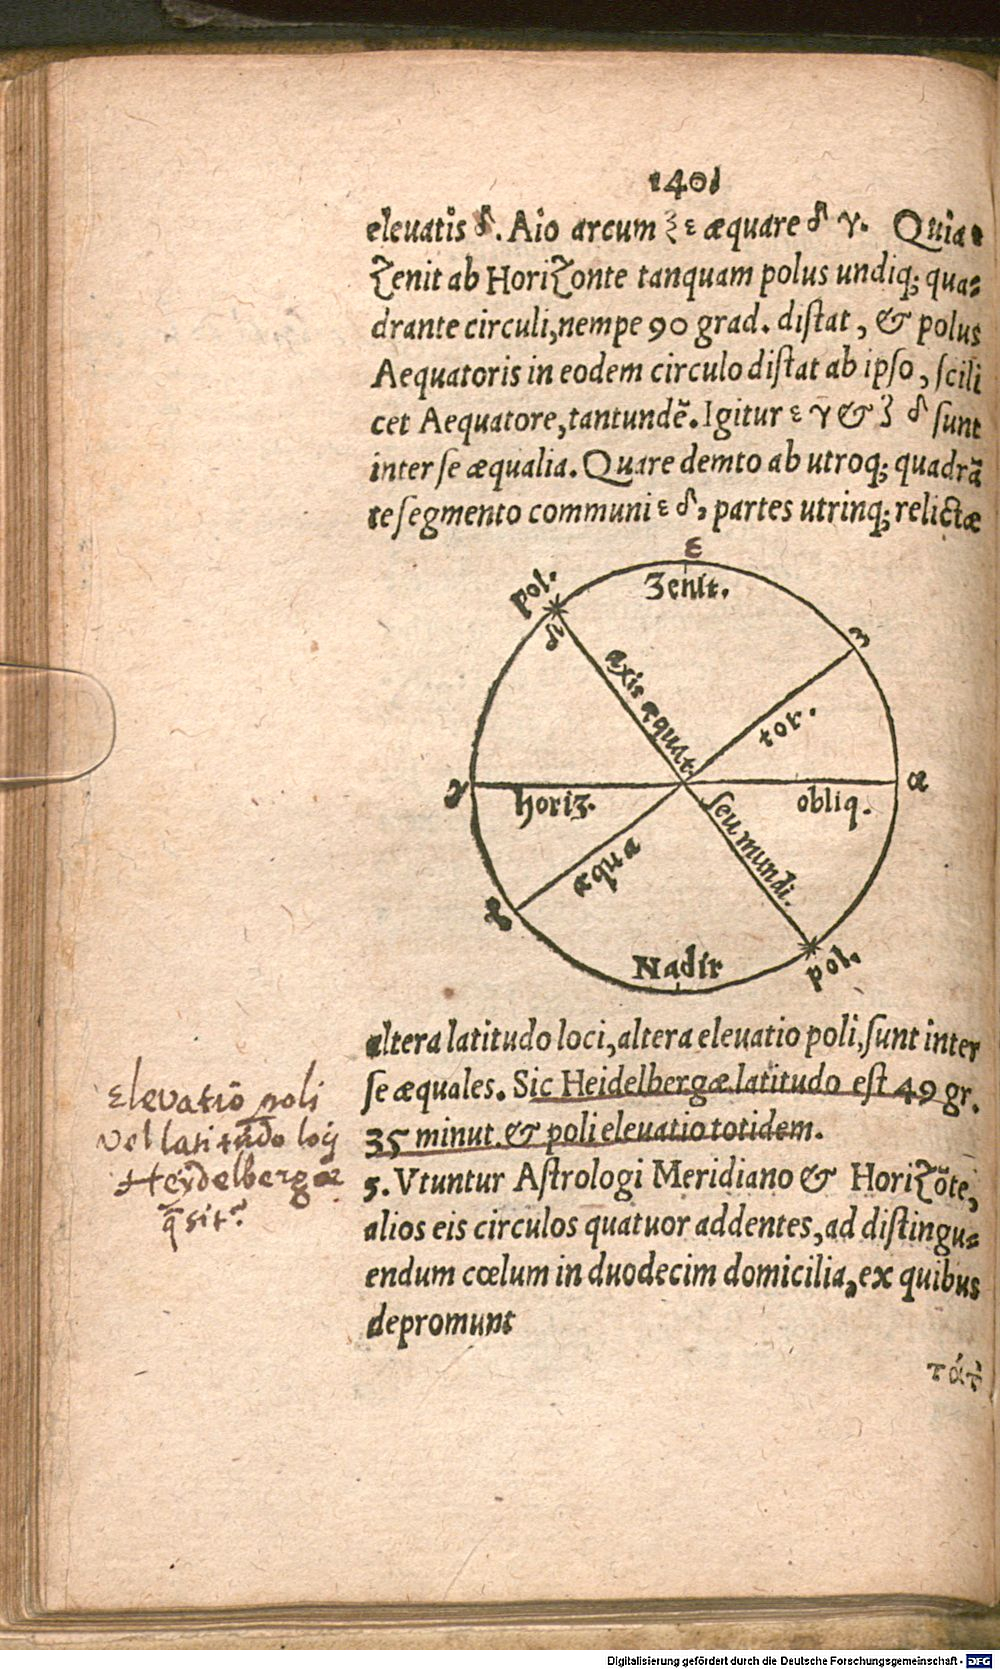 140
eleuatis δ. Aio arcum ξ ε æquare δ γ. Quia
Zenit ab Horizonte tanquam polus undiq; qua-
drante circuli, nempe 90 grad. distat, & polus
Aequatoris in eodem circulo distat ab ipso, scili
cet Aequatore, tantundẽ. Igitur ε γ & ξ δ sunt
inter se æqualia. Quare demto ab utroq; quadrã
te segmento communi ε δ, partes utrinq; relictæ
ε
Zenit.
pol.
δ
axis æquat.
tor.
α
γ
horiz.
obliq.
seu mundi.
æqua
β
Nadir
pol.
altera latitudo loci, altera eleuatio poli, sunt inter
se æquales. Sic Heidelbergæ latitudo est 49 gr.
35 minut. & poli eleuatio totidem.
Elevatiõ poli
vel latitudo locij
Heydelbergæ
q̃ sit?
5. Vtuntur Astrologi Meridiano & Horizõte,
alios eis circulos quatuor addentes, ad distingu-
endum cœlum in duodecim domicilia, ex quibus
depromunt
Digitalisierung gefördert durch die Deutsche Forschungsgemeinschaft - DFG